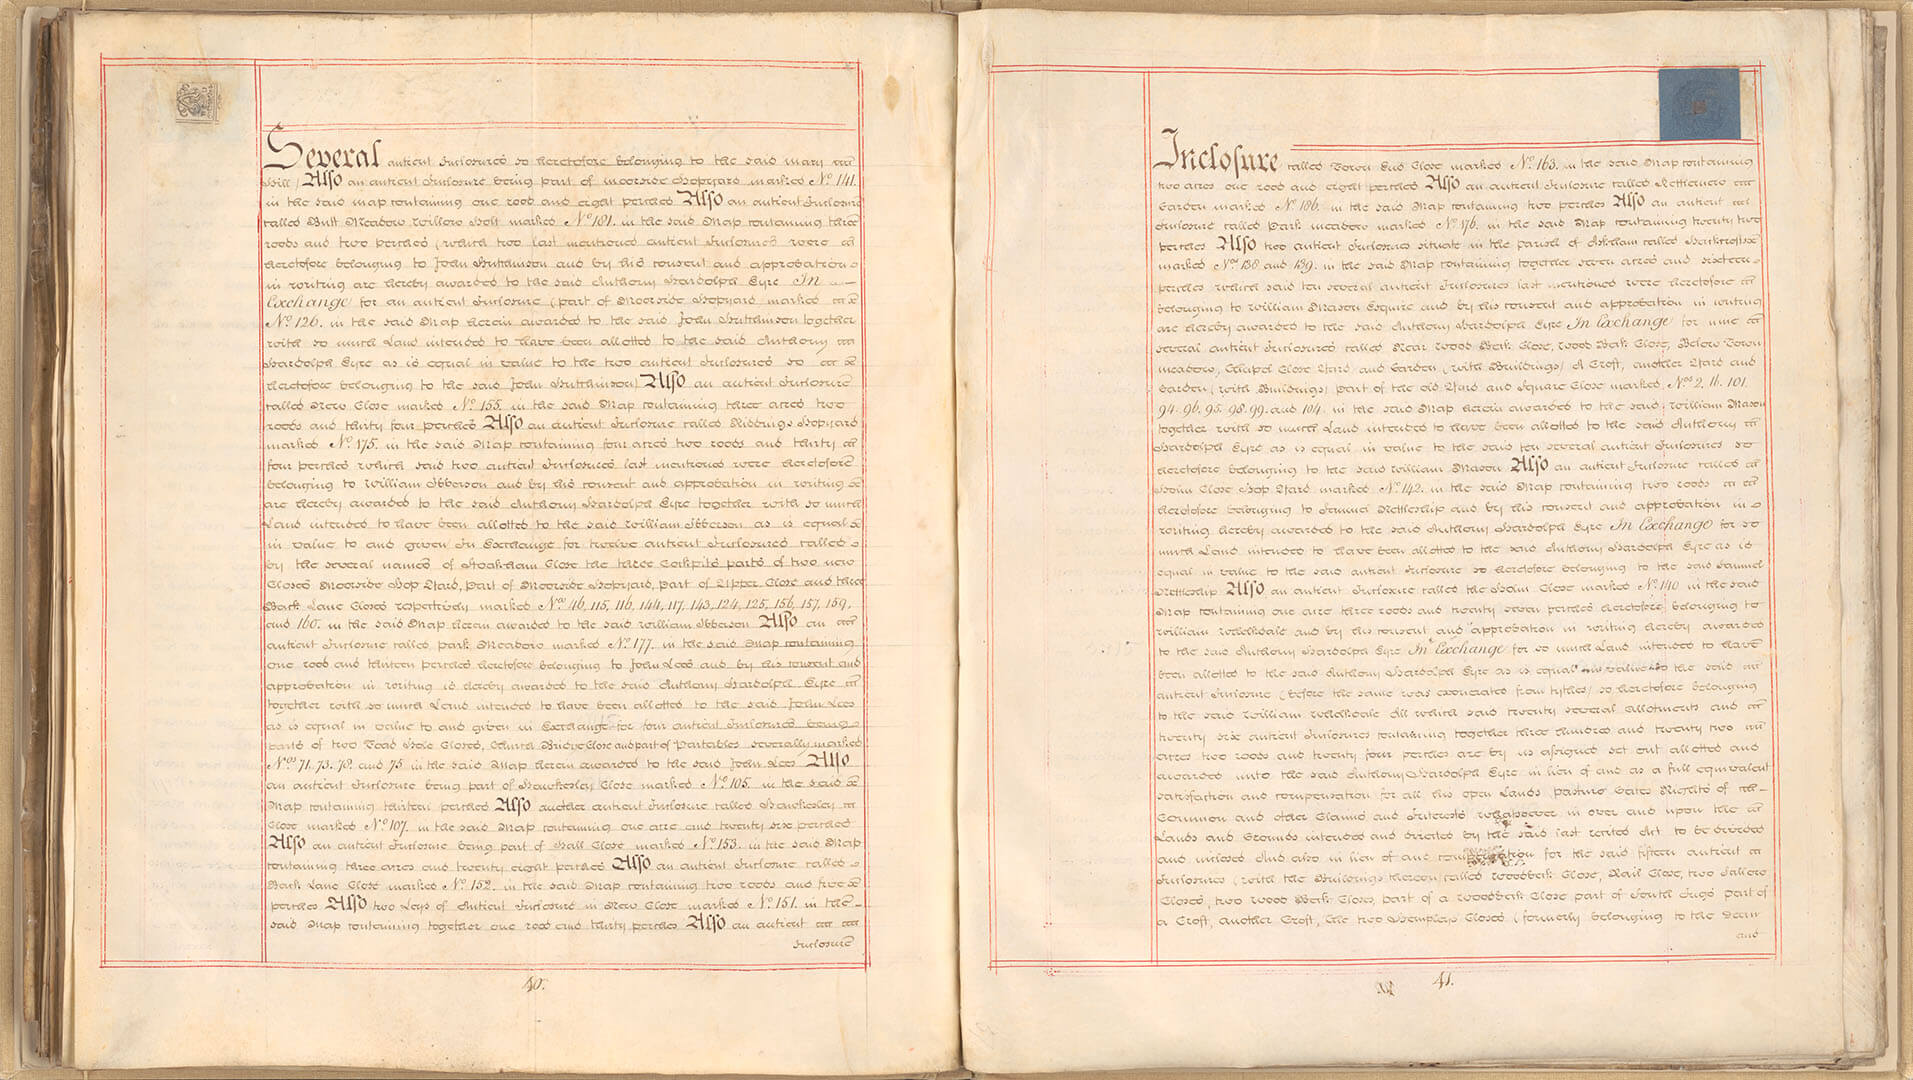 Several antient Inclosures so heretofore belonging to the said Mary
Hill) Also an antient Inclosure being part of Moorside Hopyard marked No. 141.
in the said Map containing one rood and eight perches Also an antient Inclosure
called Butt Meadow Willow Holt marked No. 181. in the said Map containing three
roods and two perches (which two last mentioned antient Inclosures were
heretofore belonging to John Hutchinson and by his consent and approbation
in writing are hereby awarded to the said Anthony Hardolph Eyre In
Exchange for an antient Inclosure (part of Moorside Hopyard marked
No. 126. in the said Map herein awarded to the said John Hutchinson together
with so much Land intended to have been allotted to the said Anthony
Hardolph Eyre as is equal in value to the two antient Inclosures so
heretofore belonging to the said John Hutchinson) Also an antient Inclosure
called New Close marked No. 155. in the said Map containing three acres two
roods and thirty four perches Also an antient Inclosure called Riddings Hopyard
marked No. 175. in the said Map containing four acres two roods and thirty
four perches which said two antient Inclosures last mentioned were heretofore
belonging to William Ibberson and by his consent and approbation in writing
are hereby awarded to the said Anthony Hardolph Eyre together with so much
Land intended to have been allotted to the said William Ibberson as is equal
in value to and given In Exchange for twelve antient Inclosures called
by the several names of Stoakham Close the three Cockpits parts of two new
Closes Moorside Hop Yard, part of Moorside Hopyard, part of Upper Close and three
Back Lane Closes respectively marked Nos. 46, 115, 116, 144, 117, 143, 124, 125, 156, 157, 159,
and 160. in the said Map herein awarded to the said William Ibberson Also an
antient Inclosure called Park Meadow marked No. 177. in the said Map containing
one rood and thirteen perches heretofore belonging to John Lees and by his consent and
approbation in writing is hereby awarded to the said Anthony Hardolph Eyre
together with so much Land intended to have been allotted to the said John Lees
as is equal in value to and given in Exchange for four antient Inclosures being
parts of two Toad Hole Closes, Church Bridge Close and part of Partables severally marked
Nos. 71. 73. 78. and 75. in the said Map herein awarded to the said John Lees Also
an antient Inclosure being part of Hawkesley Close marked No. 105. in the said
Map containing thirteen perches Also another antient Inclosure called Hawkesley
Close marked No. 107. in the said Map containing one acre and twenty six perches
Also an antient Inclosure being part of Hall Close marked No. 153. in the said Map
containing three acres and twenty eight perches Also an antient Inclosure called
Back Lane Close marked No. 152. in the said Map containing two roods and five
perches Also two Leys of Antient Inclosure in New Close marked No. 151. in the
said Map containing together one rood and thirty perches Also an antient
Inclosure
40.
Inclosure called Town End Close marked No. 163. in the said Map containing
two acres one rood and eight perches Also an antient Inclosure called
Garden marked No. 186. in the said Map containing two perches Also an antient
Inclosure called Park Meadow marked No. 176. in the said Map containing twenty two
perches Also two antient Inclosures situate in the parish of Askham called
marked Nos. 138 and 139. in the said Map containing together seven acres and sixteen
perches which said ten several antient Inclosures last mentioned were heretofore
belonging to William Mason Esquire and by his consent and approbation in writing
are hereby awarded to the said Anthony Hardolph Eyre In Exchange for nine
several antient Inclosures called Near Wood Beck Close, Wood Beck Close, Below Town
Meadow, Chapel Close Yard and Garden (with Buildings) A Croft, another Yard and
Garden (with Buildings) part of the old Yard and Square Close marked Nos. 2. 16. 101.
94. 96. 95. 98. 99. and 104. in the said Map herein awarded to the said William Mason
together with so much Land intended to have been allotted to the said Anthony
Hardolph Eyre as is equal in value to the said ten several antient Inclosures so
heretofore belonging to the said William Mason Also an antient Inclosure called
Holm Close Hop Yard marked No. 142. in the said Map containing two roods
heretofore belonging to Samuel Nettleship and by his consent and approbation in
writing hereby awarded to the said Anthony Hardolph Eyre In Exchange for so
much Land intended to have been allotted to the said Anthony Hardolph Eyre as is
equal in value to the said antient Inclosure so heretofore belonging to the said Samuel
Nettleship Also an antient Inclosure called the Holm Close marked No. 140 in the said
Map containing one acre three roods and twenty seven perches heretofore belonging to
William Whelkdale and by his consent and approbation in writing hereby awarded
to the said Anthony Hardolph Eyre In Exchange for so much Land intended to have
been allotted to the said Anthony Hardolph Eyre as is equal in value to the said
antient Inclosure (before the same was exonerated from tythes) so heretofore belonging
to the said William Whelkdale All which said twenty several allotments and
twenty six antient Inclosures containing together three hundred and twenty two
acres two roods and twenty four perches are by us assigned set out allotted and
awarded unto the said Anthony Hardolph Eyre in lieu of and as a full equivalent
satisfaction and compensation for all his open Lands pasture Gates Rights of
Common and other Claims and Interests whatsoever in over and upon the
Lands and Grounds intended and directed by the said last recited Act to be divided
and inclosed And also in lieu of and compensation for the said fifteen antient
Inclosures (with the Buildings thereon) called Woodbeck Close, Rail Close, two Fallow
Closes, two Wood Beck Closes, part of a Woodbeck Close part of South Ings part of
a Croft, another Croft, the two Hempleys Closes (formerly belonging to the Dean
and
41.